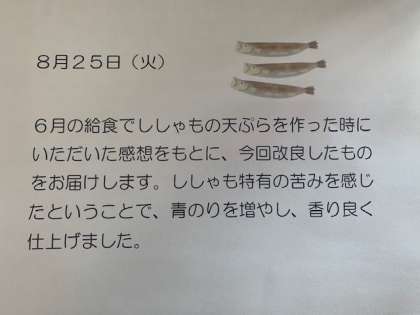 ８月２５日（火）
６月の給食でししゃもの天ぷらを作った時に
いただいた感想をもとに、今回改良したもの
をお届けします。ししゃも特有の苦みを感じ
たということで、青のりを増やし、香り良く
仕上げました。